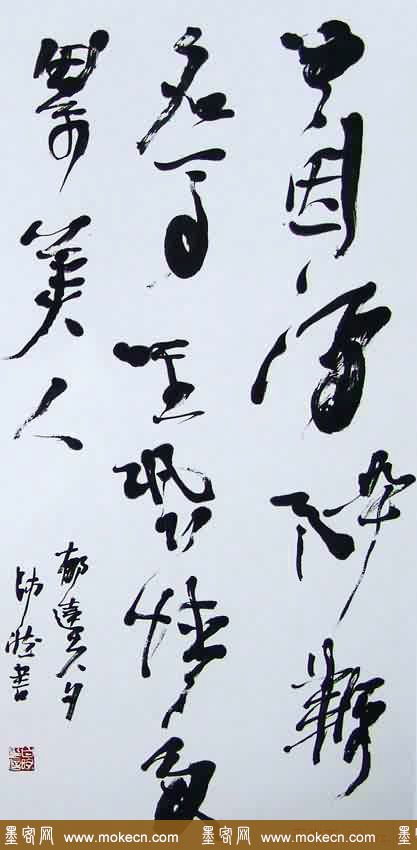 曾因酒醉鞭
名馬生恐情多
累美人
郁達夫句
書
墨客网 www.mokecn.com 墨客网 www.mokecn.com 墨客网